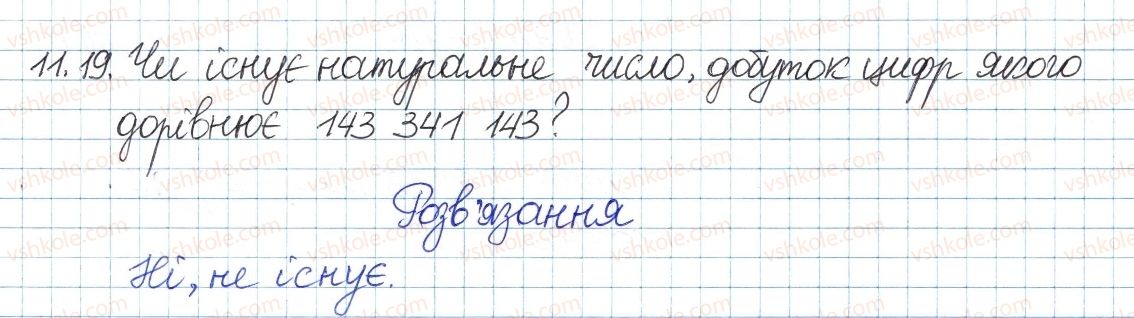 11.19. Чи існує натуральне число, добуток цифр якого
дорівнює 143 341 143?
Розв'язання
Ні, не існує.